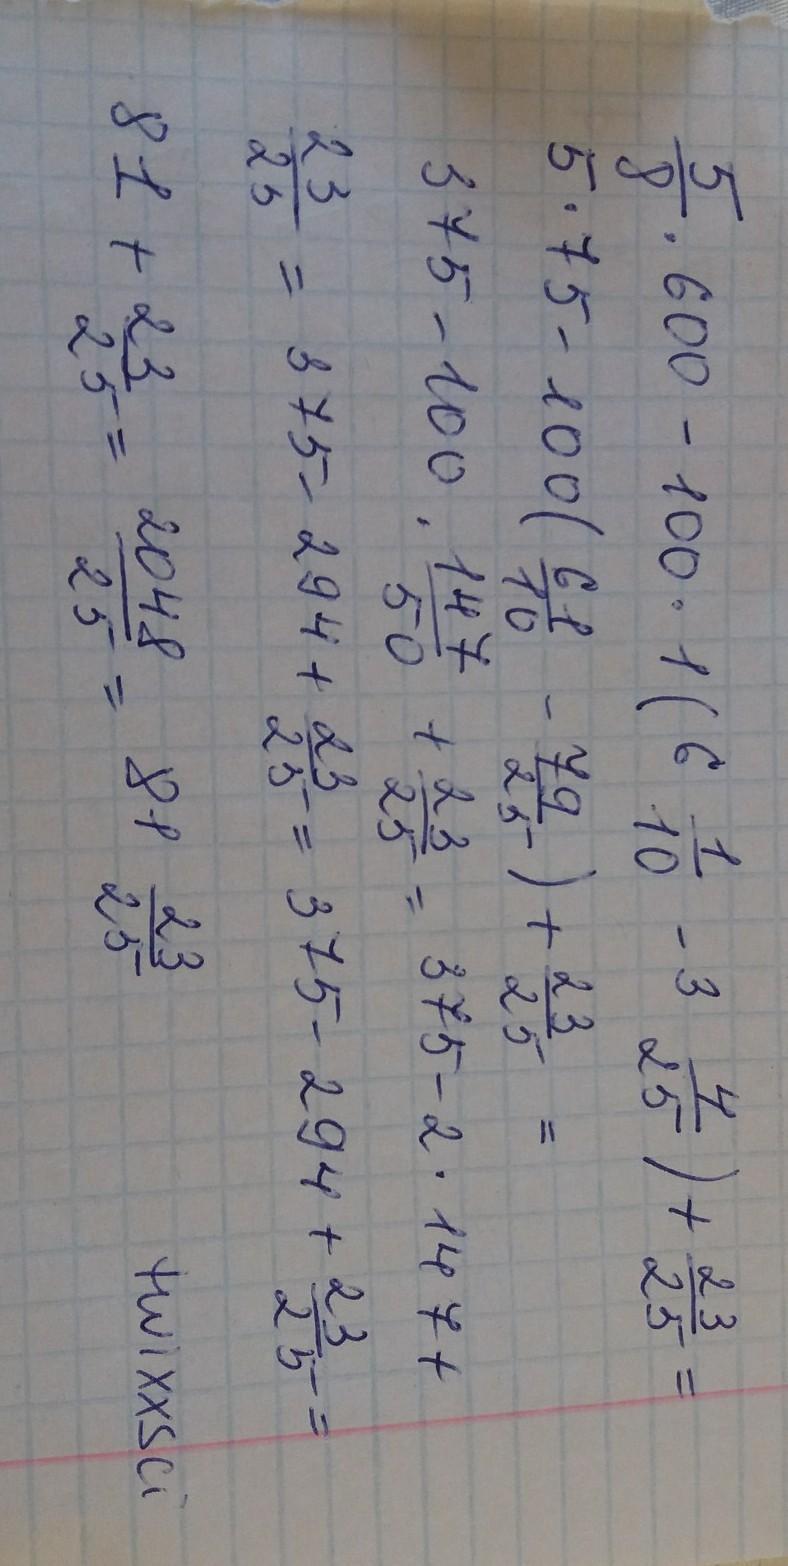 5/8 · 600 - 100 · 1 ( 6 1/10 - 3 4/25 ) + 23/25 =
5 · 75 - 100 ( 61/10 - 79/25 ) + 23/25 =
375 - 100 · 147/50 + 23/25 = 375 - 2 · 147 +
23/25 = 375 - 294 + 23/25 = 375 - 294 + 23/25 =
81 + 23/25 = 2048/25 = 81 23/25
twixxsci